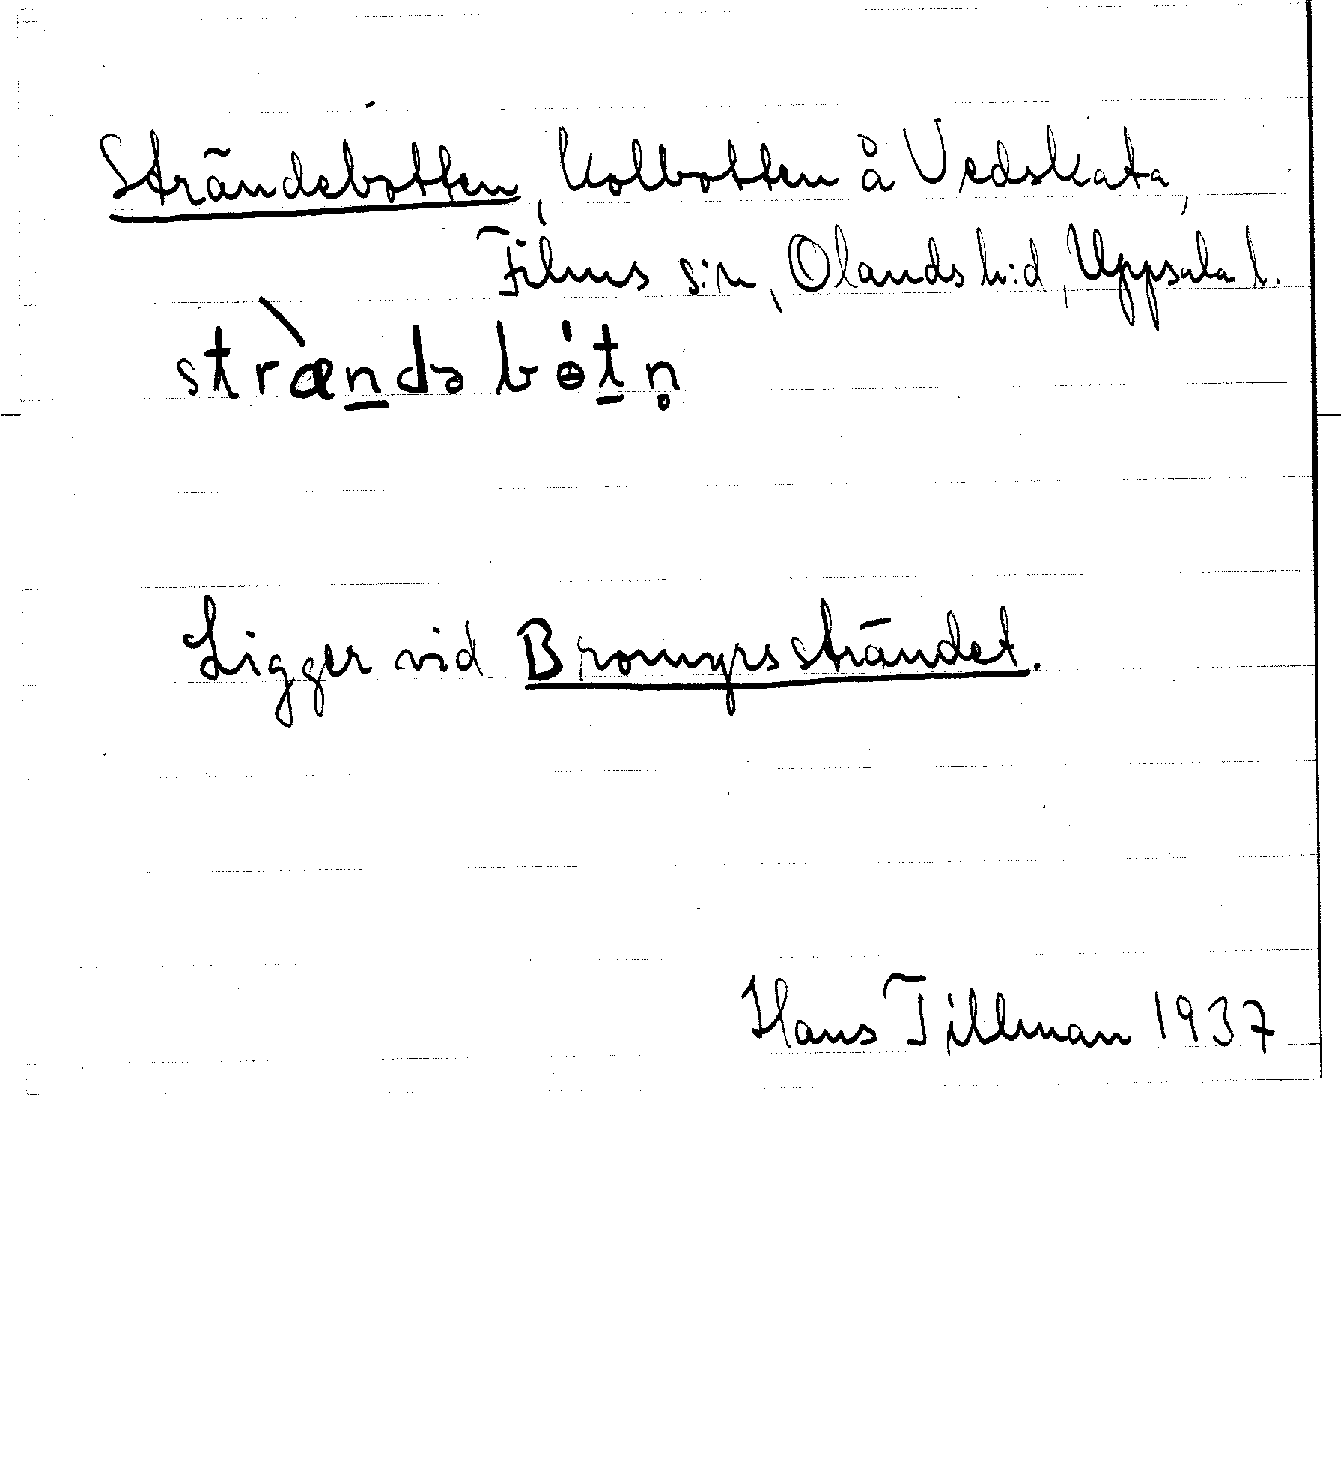 Strändebotten, Kolbotten å Vedskata,
Films s:n, Olands h:d, Uppsala l.
stræ̀ndəbɵ́tn̥
Ligger vid Bromyrsströndet.
Hans Tillman 1937